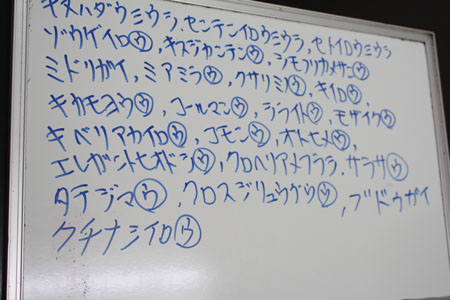 キヌハダウミウシ, センテンイロウミウシ, セトイロウミウシ
ゾウゲイロⓌ, キスジカンテンⓌ, シモフリカメサンⓌ
ミドリガイ, ミアミラⓌ, クサリミノⓌ, キイロⓌ,
キカモヨウⓌ, コールマンⓌ, シライトⓌ, モザイクⓌ
キベリアカイロⓌ, コモンⓌ, オトヒメⓌ,
エレガントヒオドシⓌ, クロヘリアメフラシ, サラサⓌ
タテジマⓌ, クロスジリュウグウⓌ, ブドウガイ
クチナシイロⓌ